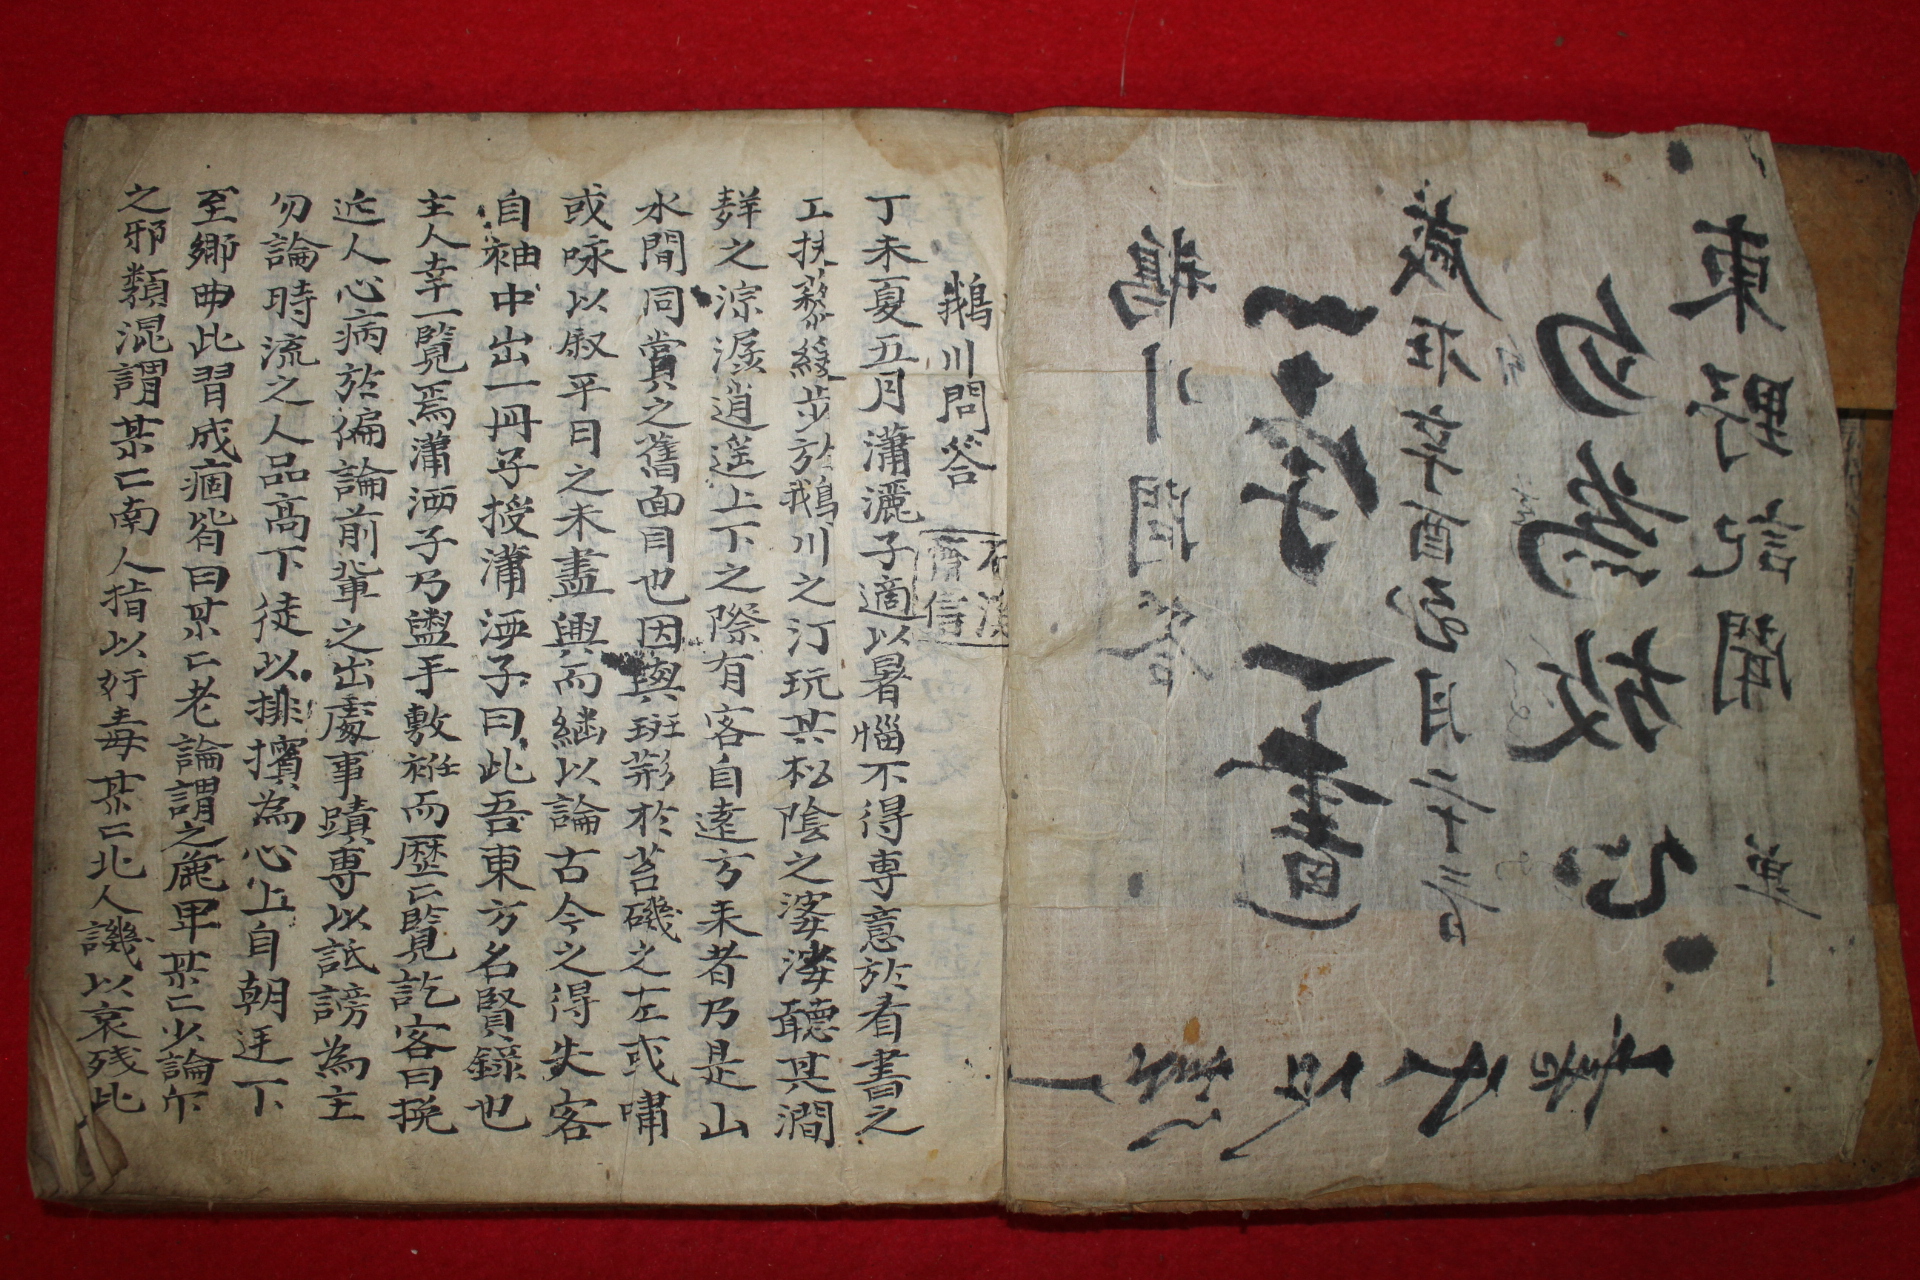 東野記聞 単
勿爲放心
歲在辛酉 月二十三日
一字一畫
鵝川問答
鵝川問答
丁未夏五月瀟灑子適以暑惱不得専意於看書之
工扶藜緩步於鵝川之汀玩其松陰之婆娑聽其澗
群之淙潺逍遥上下之際有客自遠方来者乃是山
水間同賞之舊面目也因與班荊於苔磯之左或嘯
或咏以叙平日之未盡興而繼以論古今之得失客
自袖中出一冊子授瀟洒子曰此吾東方名賢錄也
主人幸一覽焉瀟洒子乃盥手敷袵而歷〻覽訖客曰挽
近人心病於偏論前輩之出處事蹟専以詆謗為主
勿論時流之人品高下徒以排擯為心上自朝廷下
至鄉曲此習成痼皆曰某〻老論謂之麁卑某〻少論
之邪類混謂某〻南人指以奸毒某〻北人譏以哀残此